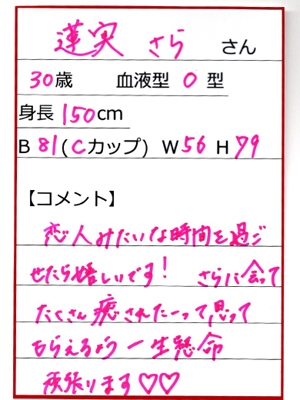 蓮実 さら さん
30歳 血液型 O 型
身長 150cm
B 81(Cカップ) W56 H79
【コメント】
恋人みたいな時間を過ご
せたら嬉しいです! さらに会って
たくさん癒されたーって思って
もらえるよう一生懸命
頑張ります♡♡